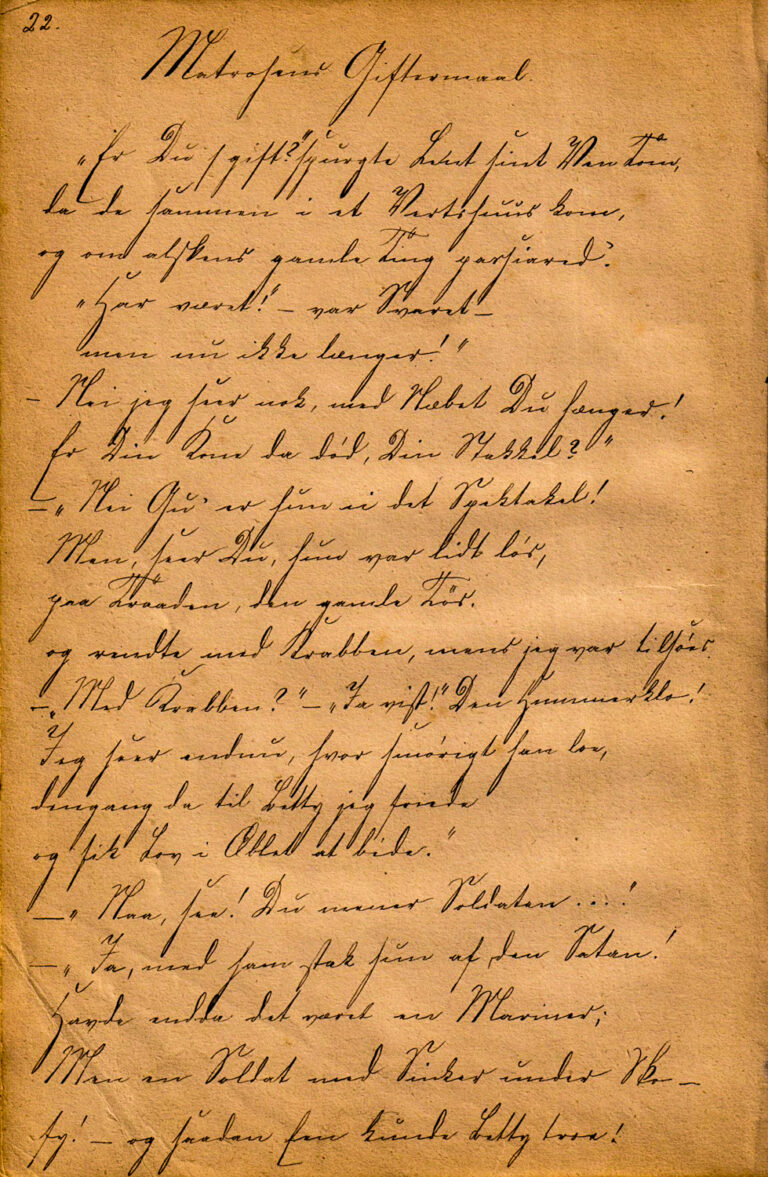 22.
Matrosens Giftermaal.
"Er Du gift?" spurgte Lent sint Ven Tom,
da de sammen i et Vertshuus kom,
og om alskens gamle Ting passiared?
"Har været!" – var Svaret –
men nu ikke længer!"
– Nei jeg seer nok, med Næbet Du hænger!
Er Din Kone da död, Din Stakkel?"
– "Nei Gu' er hun ei det Spektakel!
Men, seer Du, hun var lidt lös,
paa Traaden, den gamle Tös.
og rendte med Krabben, mens jeg var tilsöes.
– "Med Krabben?" – "Ja vist!" Den Hummerklo!
Jeg seer endnu, hvor smörigt han loe,
dengang da til Betty jeg friede
og fik Lov i Æblet at bide."
– "Naa, see! Du mener Soldaten ...!
– "Ja, med ham stak hun af, den Satan!
Havde endda det været en Mariner;
Men en Soldat med Sinker under Sko –
fy! – og saadan Een kunde Betty troe!